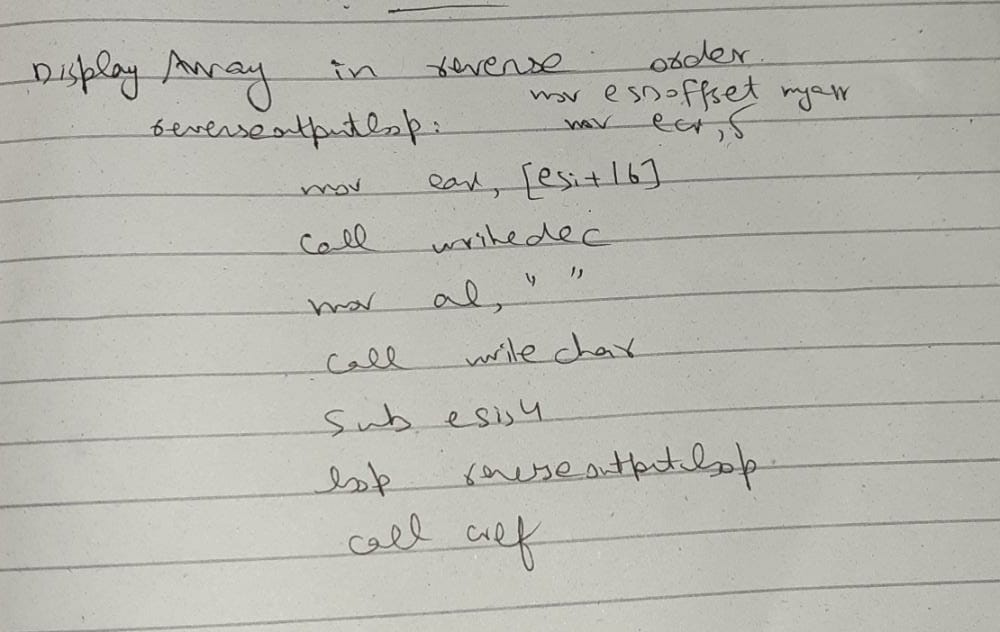 Display Array in reverse order.
mov esi,offset myarr
reverseoutputloop: mov ecx,5
mov eax, [esi+16]
Call writedec
mov al, " "
Call write char
Sub esi,4
loop reverseoutputloop.
call crlf